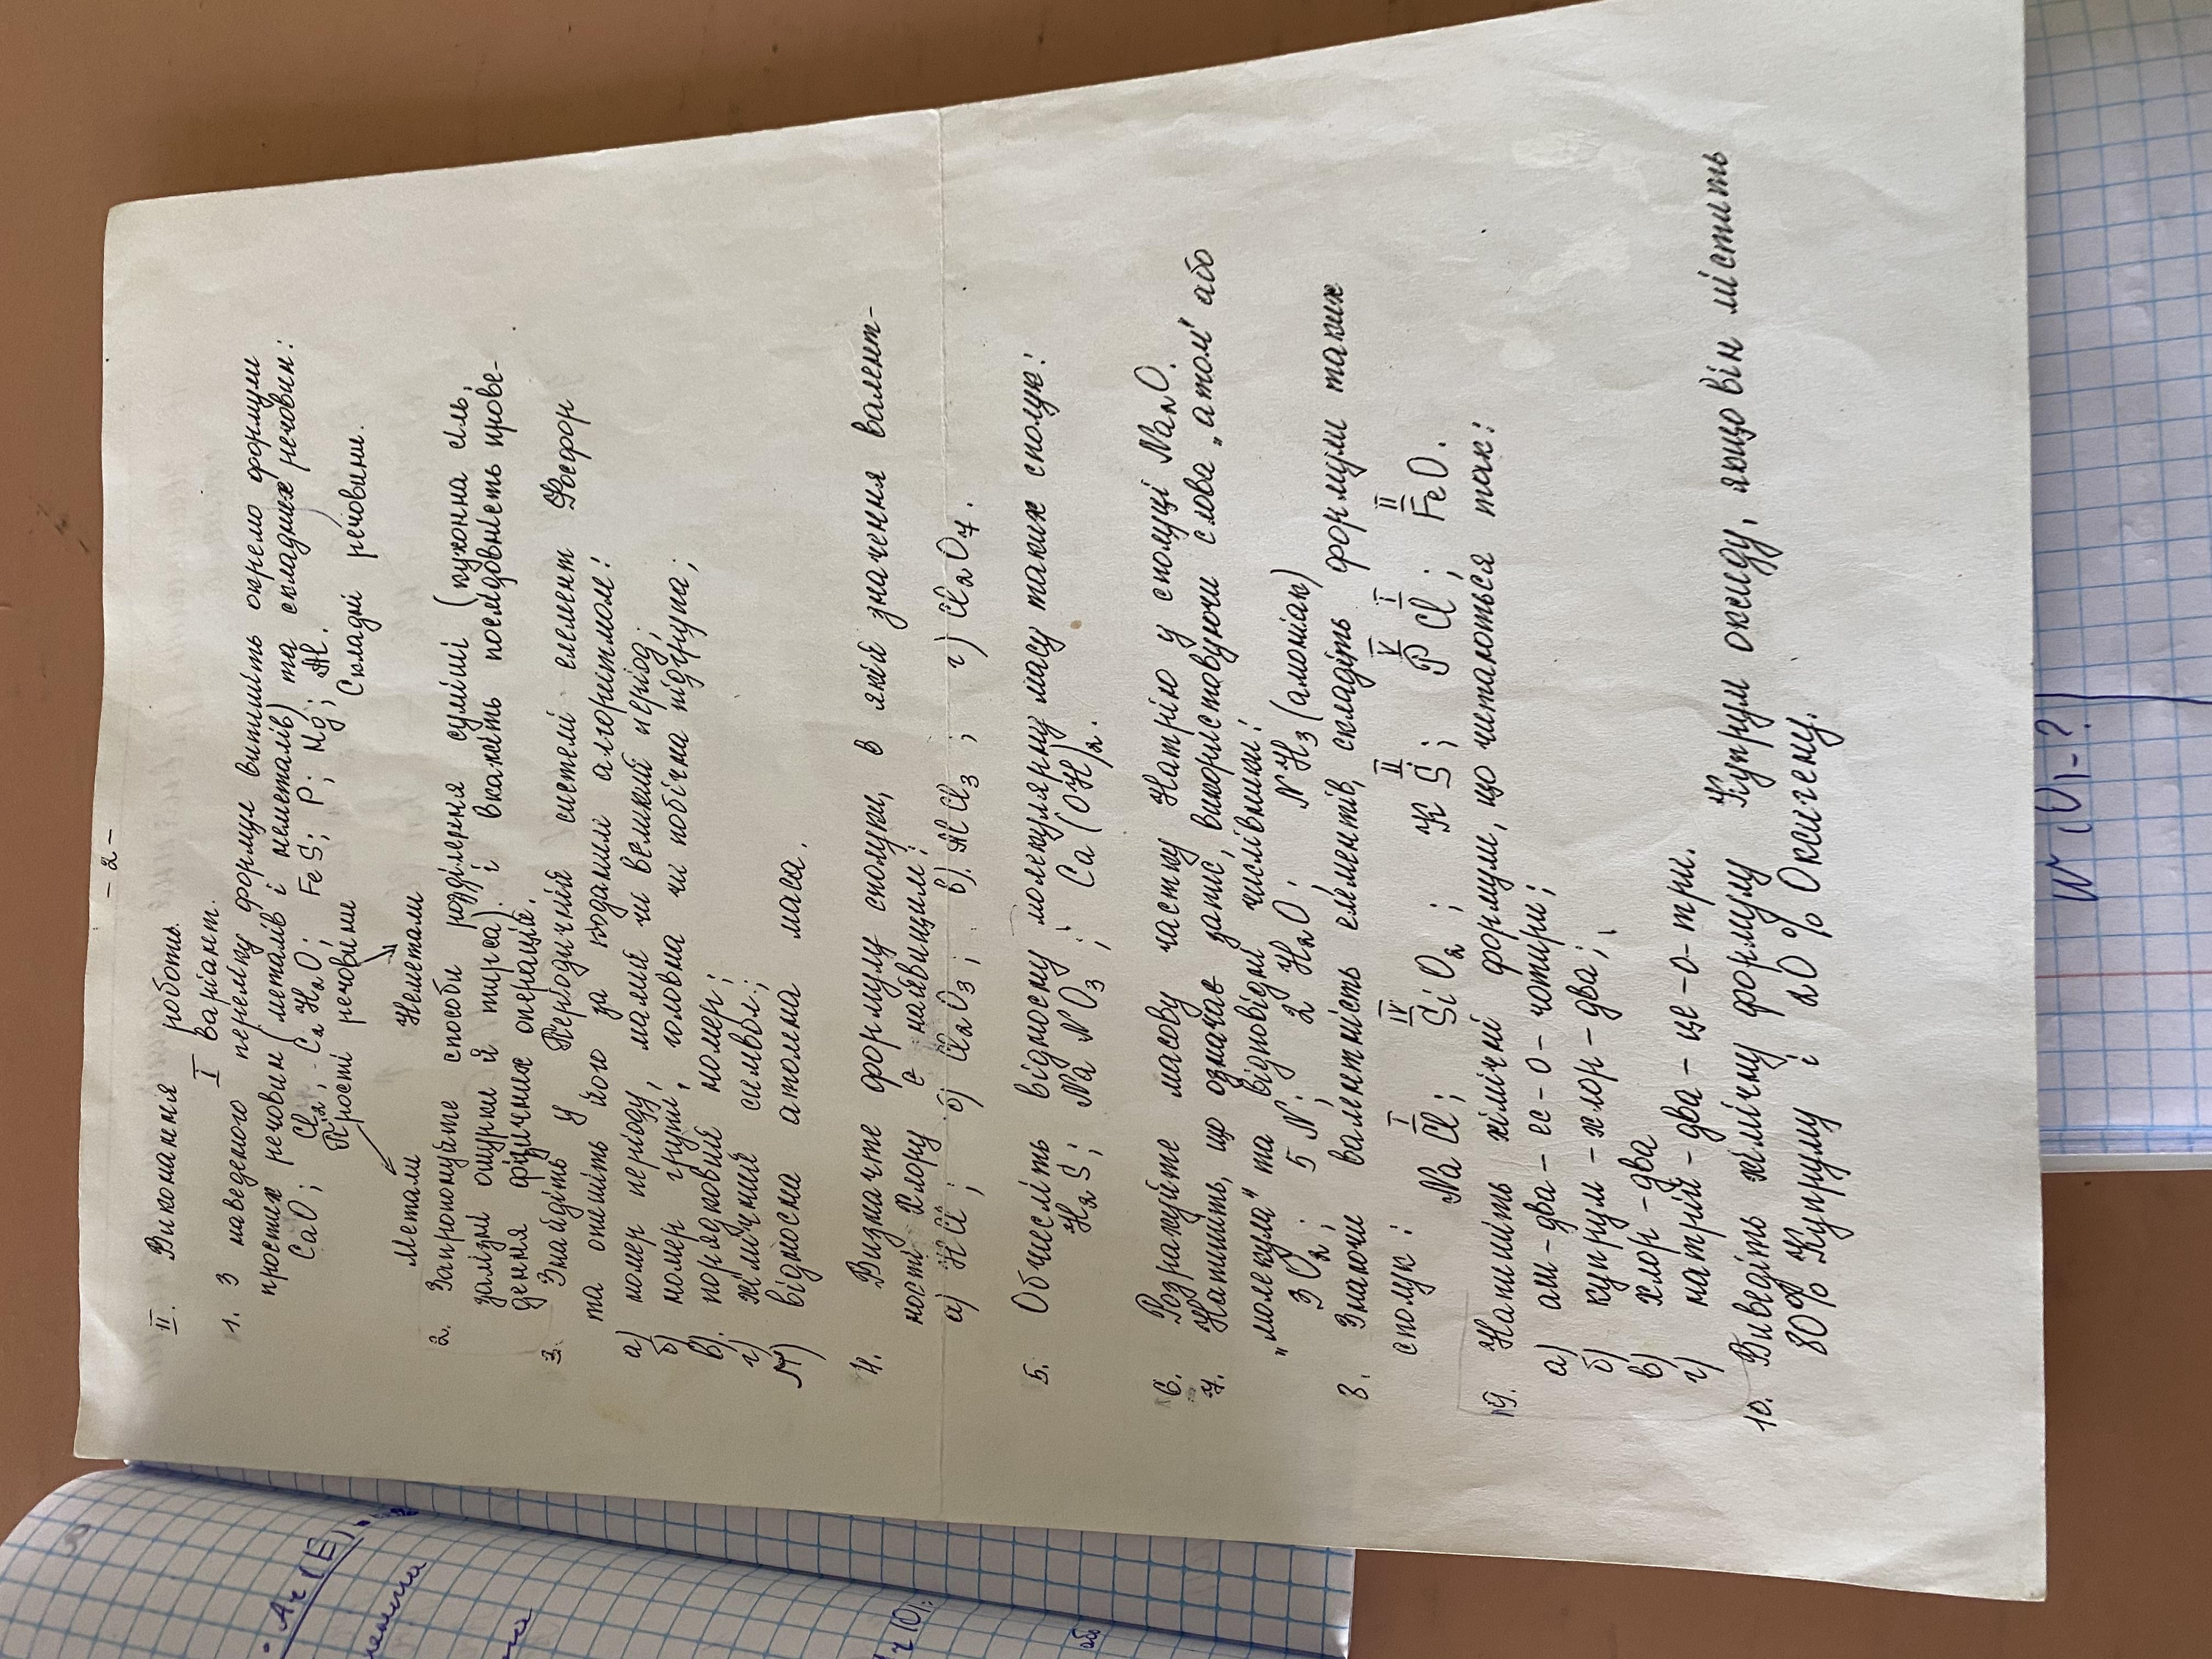 - 2 -
II. Виконання роботи.
I варіант.
1. З наведеного переліку формул випишіть окремо формули
простих речовин (металів і неметалів) та складних речовин:
CaO; Cl₂; H₂O; FeS; P; Mg; Al.
Прості речовини Складні речовини.
Метали Неметали
2. Запропонуйте способи розділення суміші (кухонна сіль,
залізні ошурки й тирса) і вкажіть послідовність прове-
дення фізичних операцій.
3. Знайдіть у Періодичній системі елемент Фосфор
та опишіть його за поданим алгоритмом:
а) номер періоду, малий чи великий період;
б) номер групи, головна чи побічна підгрупа;
в) порядковий номер;
г) хімічний символ;
д) відносна атомна маса.
4. Визначте формулу сполуки, в якій значення валент-
ності Хлору є найвищим:
а) HCl; б) Cl₂O₃; в) AlCl₃; г) Cl₂O₇.
5. Обчисліть відносну молекулярну масу таких сполук:
H₂S; NaNO₃; Ca(OH)₂.
6. Розрахуйте масову частку Натрію у сполуці Na₂O.
7. Напишіть, що означає запис, використовуючи слова „атом" або
„молекула" та відповідні числівники:
3O₂; 5N; 2H₂O; NH₃ (амоніак)
8. Знаючи валентність елементів, складіть формули таких
сполук: NaCl; SiO₂; K S; P Cl; FeO.
I IV II V I II
9. Напишіть хімічні формули, що читаються так:
а) аш - два - ес - о - чотири;
б) купрум - хлор - два;
в) хлор - два
г) натрій - два - це - о - три.
10. Виведіть хімічну формулу Купрум оксиду, якщо він містить
80% Купруму і 20% Оксигену.
Ar (E)
W (O) - ?